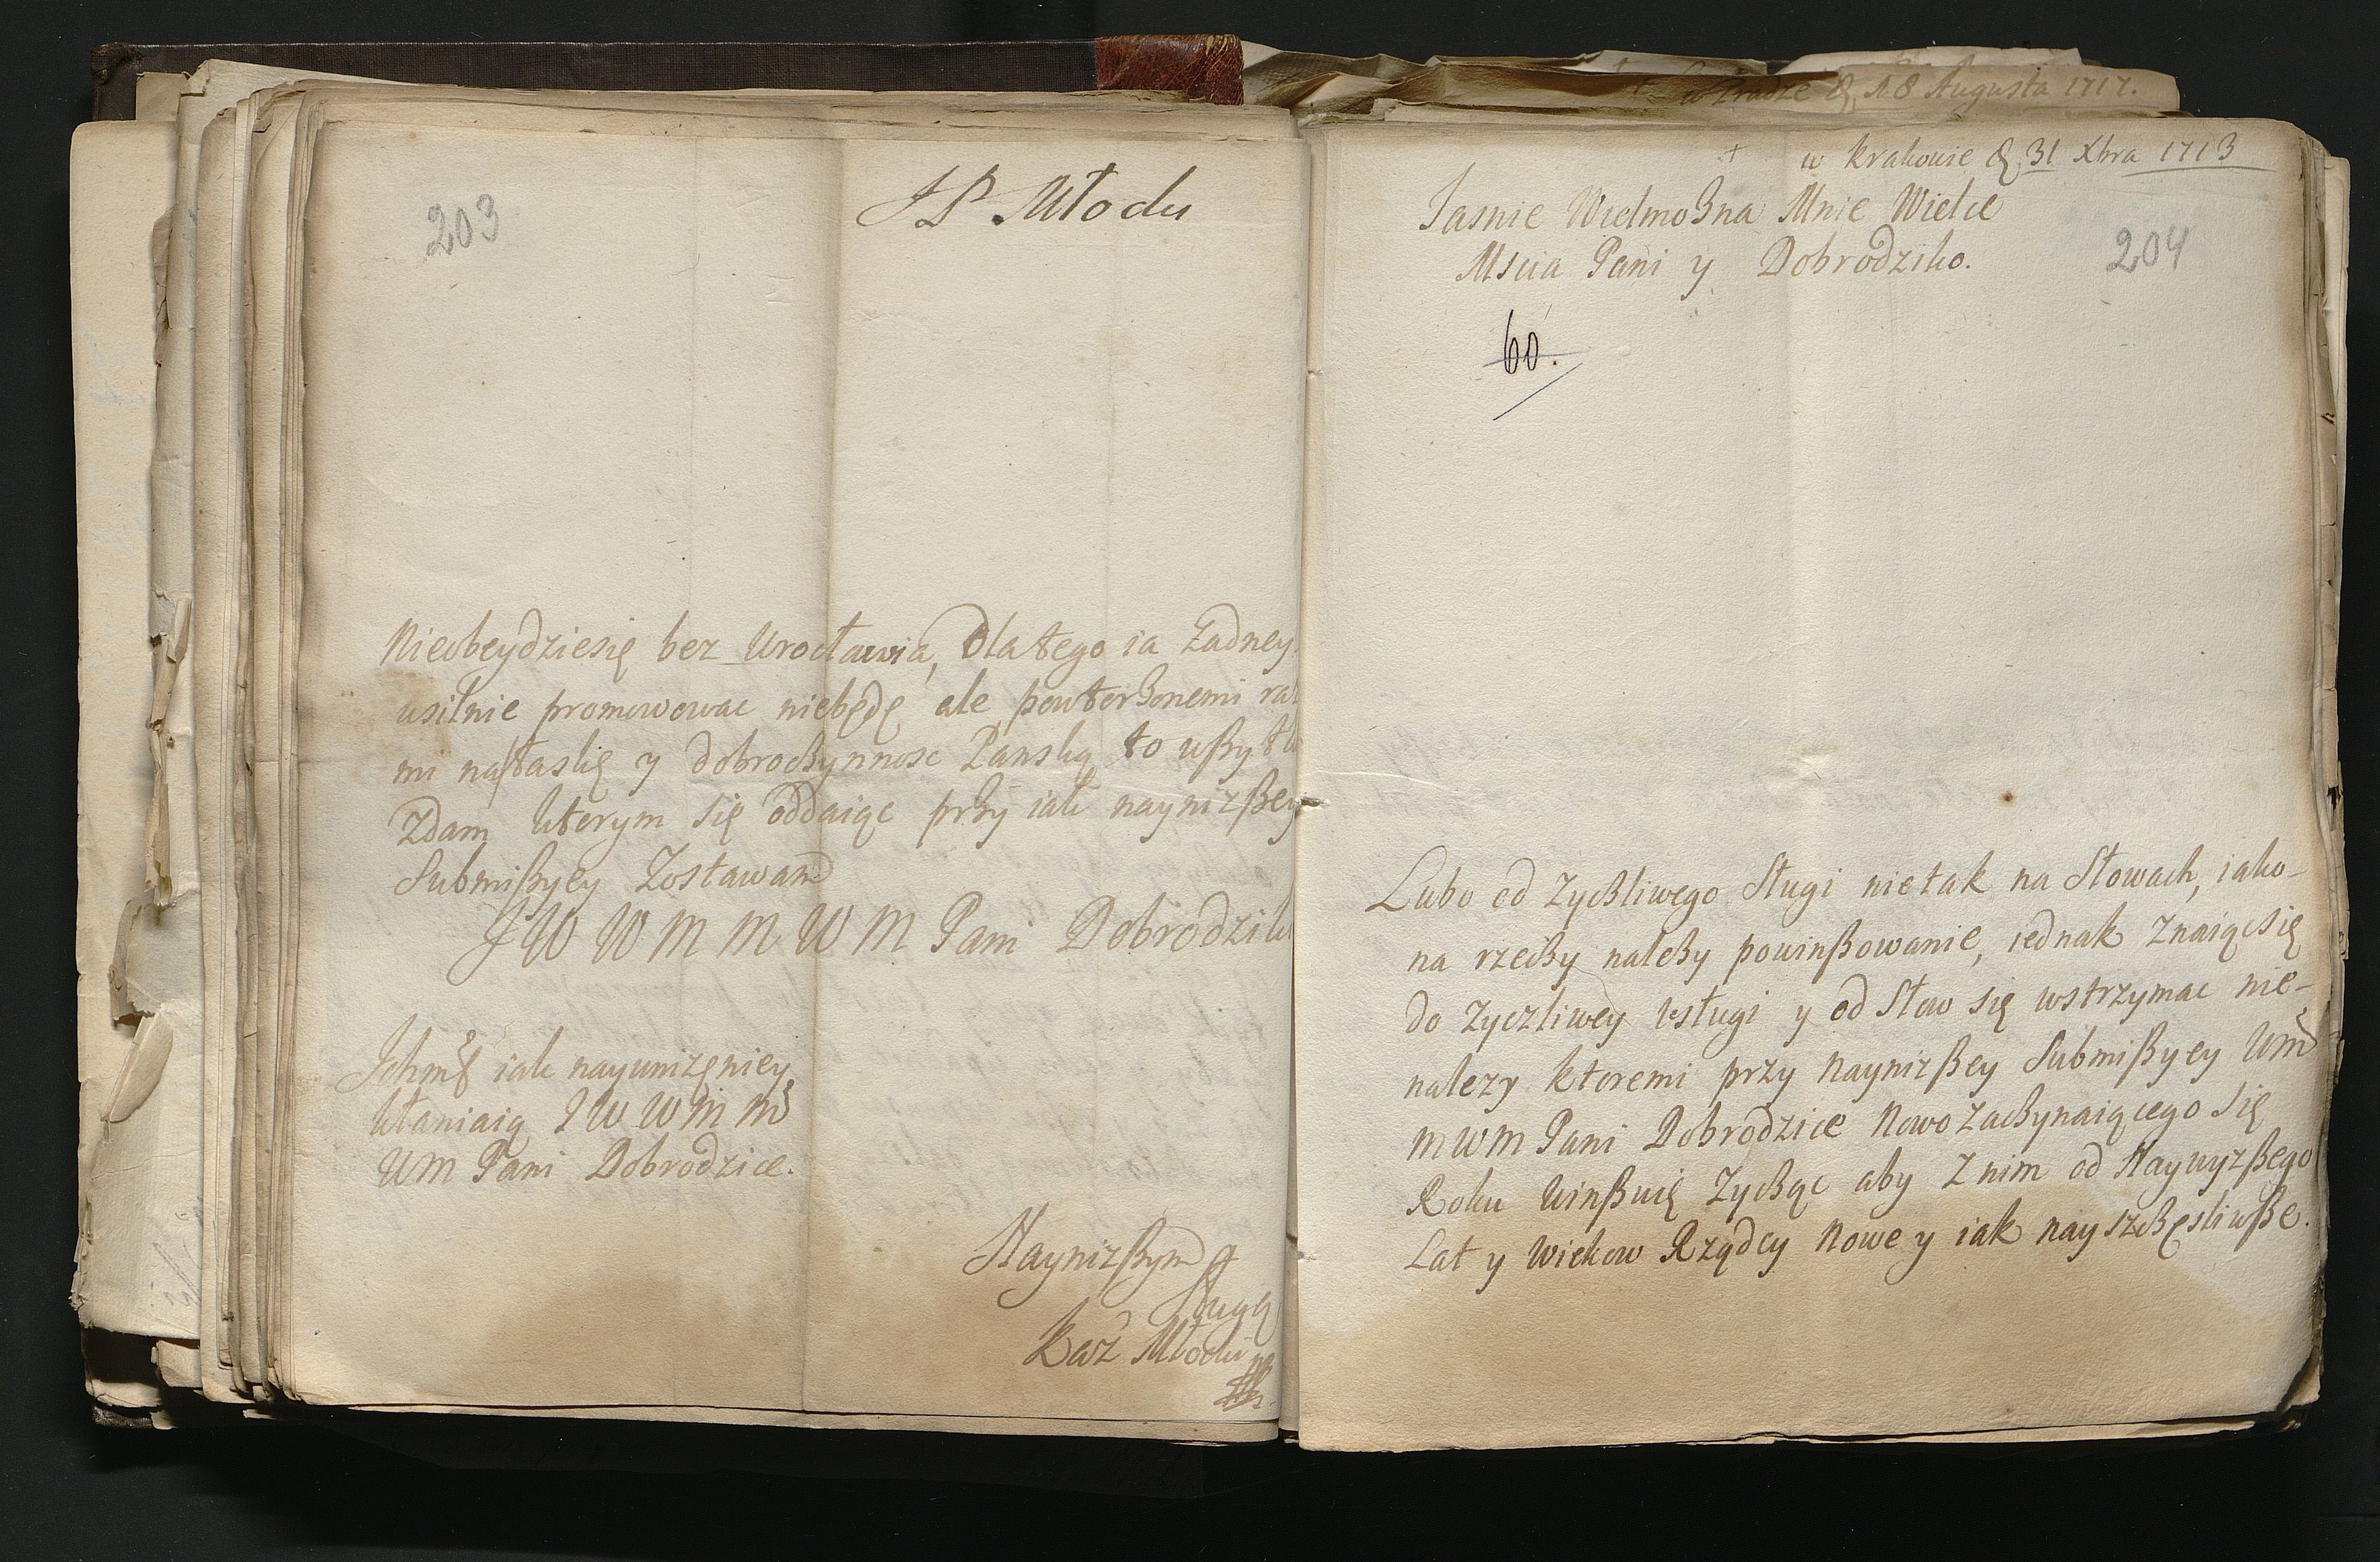 203
JP. Młocki
Nieobeydziesię bez Urocławia, dlatego ia żadney
usilnie promowowac niebędę, ale powtorzonemi
mi na łaskę y dobroczynnosc Panską to
Zdam kterym się oddaiąc przy iak nayniżßey
Submißyey Zostawam
J W W M M W M Pani Dobrodziki
Jchmć iak nayuniżęniey
kłaniaią J W W M M
W M Pani Dobrodzice.
Nayniżßym
sługą
Kaz Młocki
w Zradze d, 18 Augusta 1717.
w Krakowie d, 31 Xbra 1713
Jasnie Wielmożna Mnie Wielce
Mscia Pani y Dobrodziko.
204
60.
Lubo od Zyczliwego Sługi nietak na Słowach, iako-
na rzeczy należy powinßowanie, iednak Znaiącsię
do Zyczliwey Vsługi y od Słow się wstrzymac nie-
nalezy ktoremi przy Nayniżßey Submißyey WM
M W M Pani Dobrodzice Nowo Zaczynaiącego się
Roku Winßuię Zycząc aby Z nim od Naywyzßego
Lat y Wiekow Rządcy Nowe y iak nayszczęsliwße.